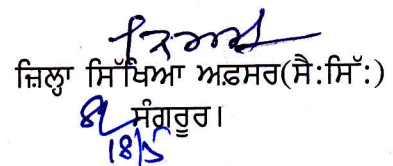 ਜ਼ਿਲ੍ਹਾ ਸਿੱਖਿਆ ਅਫ਼ਸਰ(ਸੈ:ਸਿੱ:)
ਸੰਗਰੂਰ।
18/5